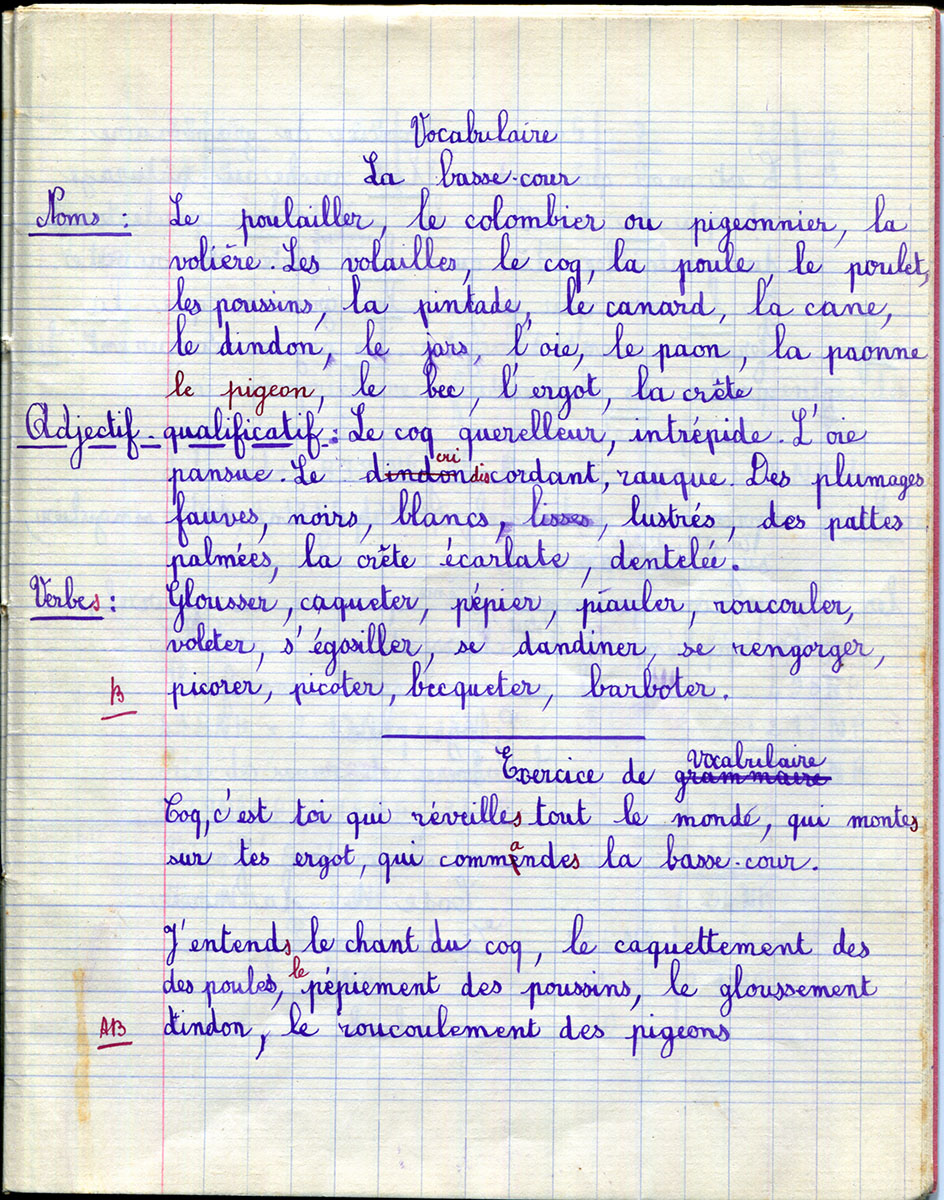 Vocabulaire
La basse-cour
Noms : Le poulailler, le colombier ou pigeonnier, la
volière. Les volailles, le coq, la poule, le poulet,
les poussins, la pintade, le canard, la cane,
le dindon, le jars, l'oie, le paon, la paonne
le pigeon, le bec, l'ergot, la crête
Adjectif-qualificatif : Le coq querelleur, intrépide. L'oie
pansue. Le dindon cri discordant, rauque. Des plumages
fauves, noirs, blancs, lisses, lustrés, des pattes
palmées, la crête écarlate, dentelée.
Verbes : Glousser, caqueter, pépier, piauler, roucouler,
voleter, s'égosiller, se dandiner, se rengorger,
B picorer, picoter, becqueter, barboter.
Exercice de grammaire Vocabulaire
Coq, c'est toi qui réveilles tout le monde, qui montes
sur tes ergot, qui commandes la basse-cour.
J'entends le chant du coq, le caquettement des
des poules, le pépiement des poussins, le gloussement
AB dindon, le roucoulement des pigeons